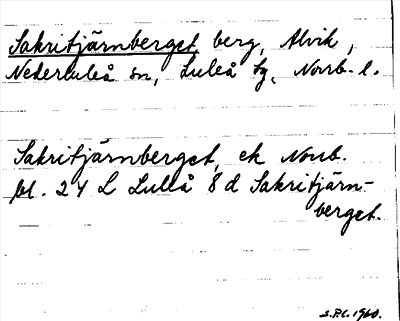 Sakritjärnberget berg, Alvik,
Nederluleå sn, Luleå tg, Norrb. l.
Sakritjärnberget, ek Norrb.
bl. 24 L Luleå 8 d Sakritjärn-
berget.
S.P.C. 1960.